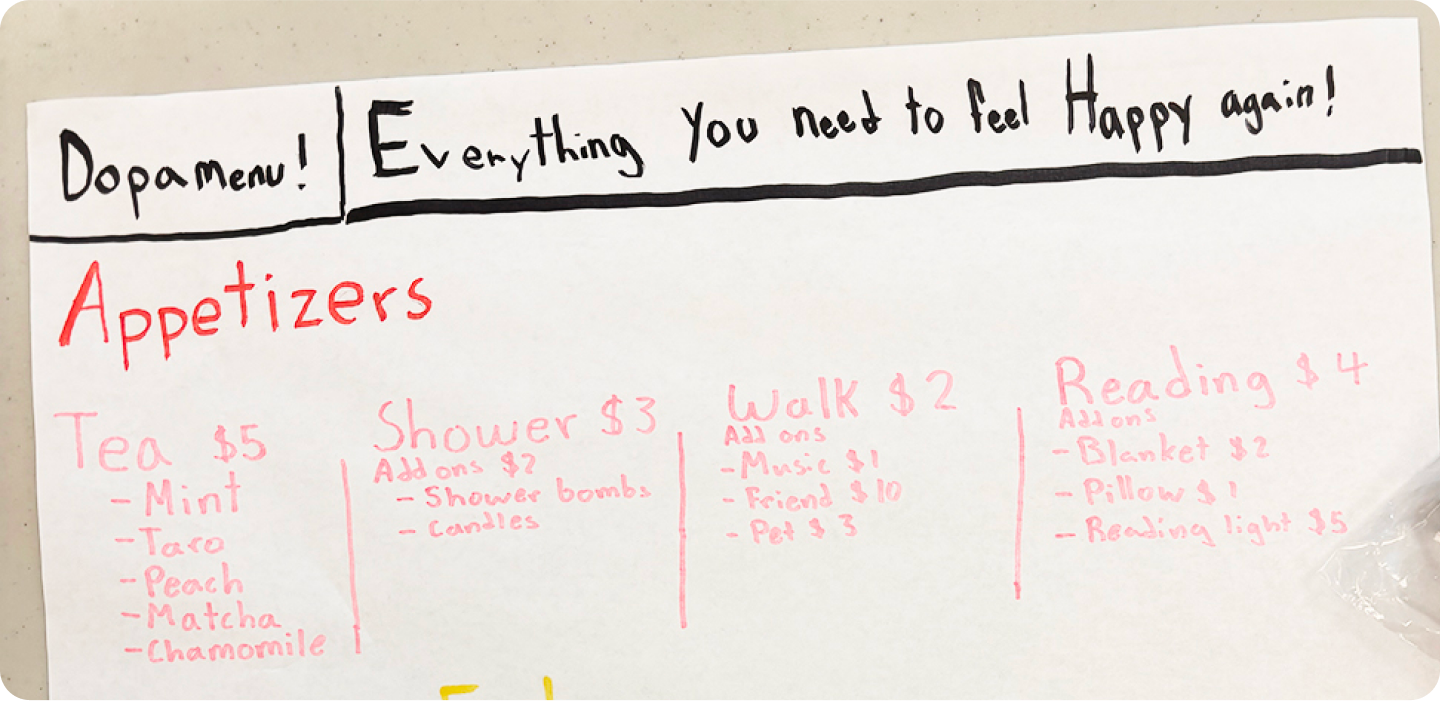 Dopamenu!
Everything You need to feel Happy again!
Appetizers
Tea $5
- Mint
- Taro
- Peach
- Matcha
- Chamomile
Shower $3
Add ons $2
- Shower bombs
- Candles
Walk $2
Add ons
- Music $1
- Friend $10
- Pet $3
Reading $4
Add ons
- Blanket $2
- Pillow $1
- Reading light $5